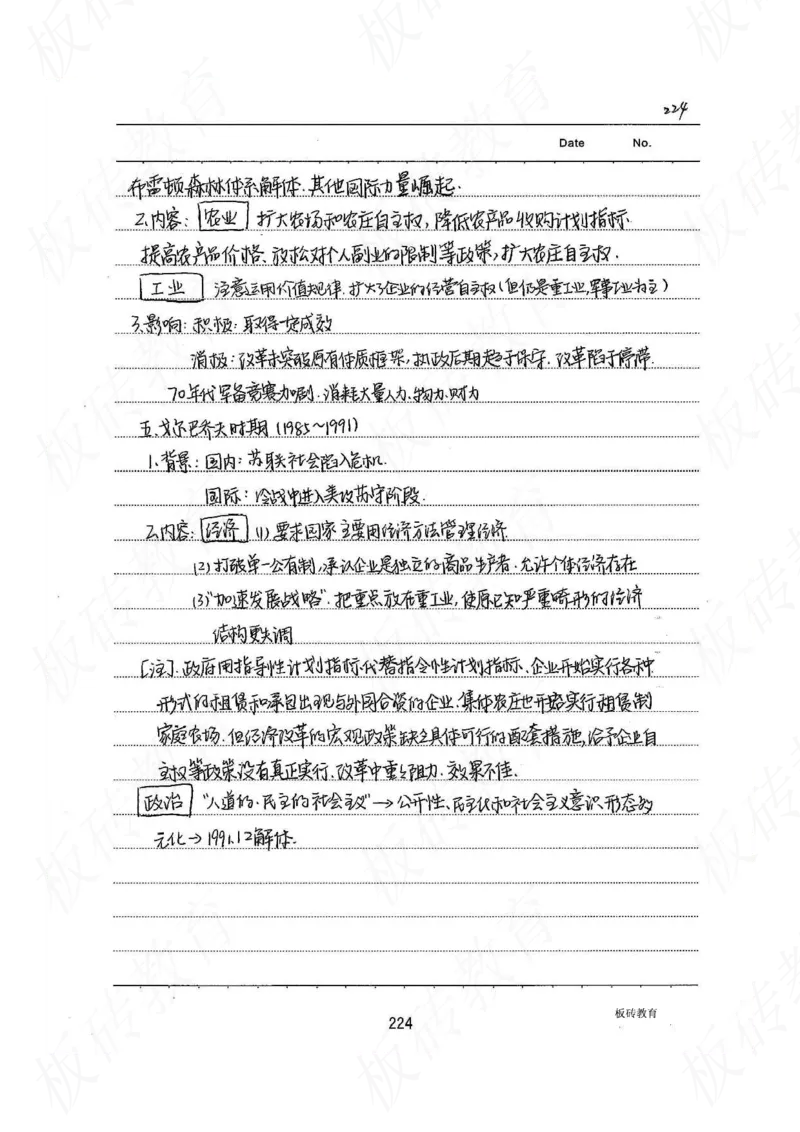 224
Date No.
布雷顿森林体系解体.其他国际力量崛起.
2.内容: 农业 扩大农场和农庄自主权,降低农产品收购计划指标
提高农产品价格、放松对个人副业的限制等政策,扩大农庄自主权.
工业 注意运用价值规律.扩大了企业的经营自主权(但仍是重工业,军事工业为主)
3.影响:积极:取得一定成效
消极:改革未突破原有体质框架,执政后期趋于保守.改革陷于停滞.
70年代军备竞赛加剧.消耗大量人力、物力.财力
五.戈尔巴乔夫时期(1985~1991)
1.背景:国内:苏联社会陷入危机.
国际:冷战中进入美攻苏守阶段.
2.内容: 经济 (1)要求国家主要用经济方法管理经济
(2)打破单一公有制,承认企业是独立的商品生产者.允许个体经济存在
(3)"加速发展战略".把重点放在重工业,使原已知严重畸形的经济
结构更失调
[注].政府用指导性计划指标代替指令性计划指标、企业开始实行各种
形式的租赁和承包出现与外国合资的企业.集体农庄也开始实行租赁制
家庭农场.但经济改革的宏观政策缺乏具体可行的配套措施,给予企业自
主权等政策没有真正实行.改革中重重阻力.效果不佳.
政治 "人道的.民主的社会主义"→公开性、民主化和社会主义意识形态多
元化→1991.12解体.
224
板砖教育
板砖教育